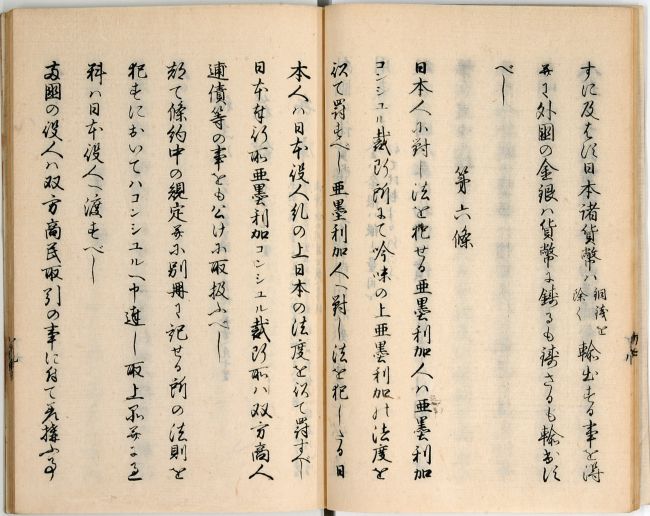 すに及はす日本諸貨幣ハ銅銭を除く輸出する事を得
并に外國の金銀ハ貨幣に鋳るも鋳さるも輸出す
べし
第六條
日本人に對し法を犯せる亜墨利加人ハ亜墨利加
コンシュル裁断所にて吟味の上亜墨利加の法度を
以て罰すべし亜墨利加人へ對し法を犯したる日
本人ハ日本役人糺の上日本の法度を以て罰すべし
日本奉行所亜墨利加コンシュル裁断所ハ双方商人
逋債等の事をも公けに取扱ふべし
都て條約中の規定并に別冊に記せる所の法則を
犯すにおいてハコンシュルへ申達し取上品并に過
料ハ日本役人へ渡すべし
両國の役人ハ双方商民取引の事に付て差構ふ事